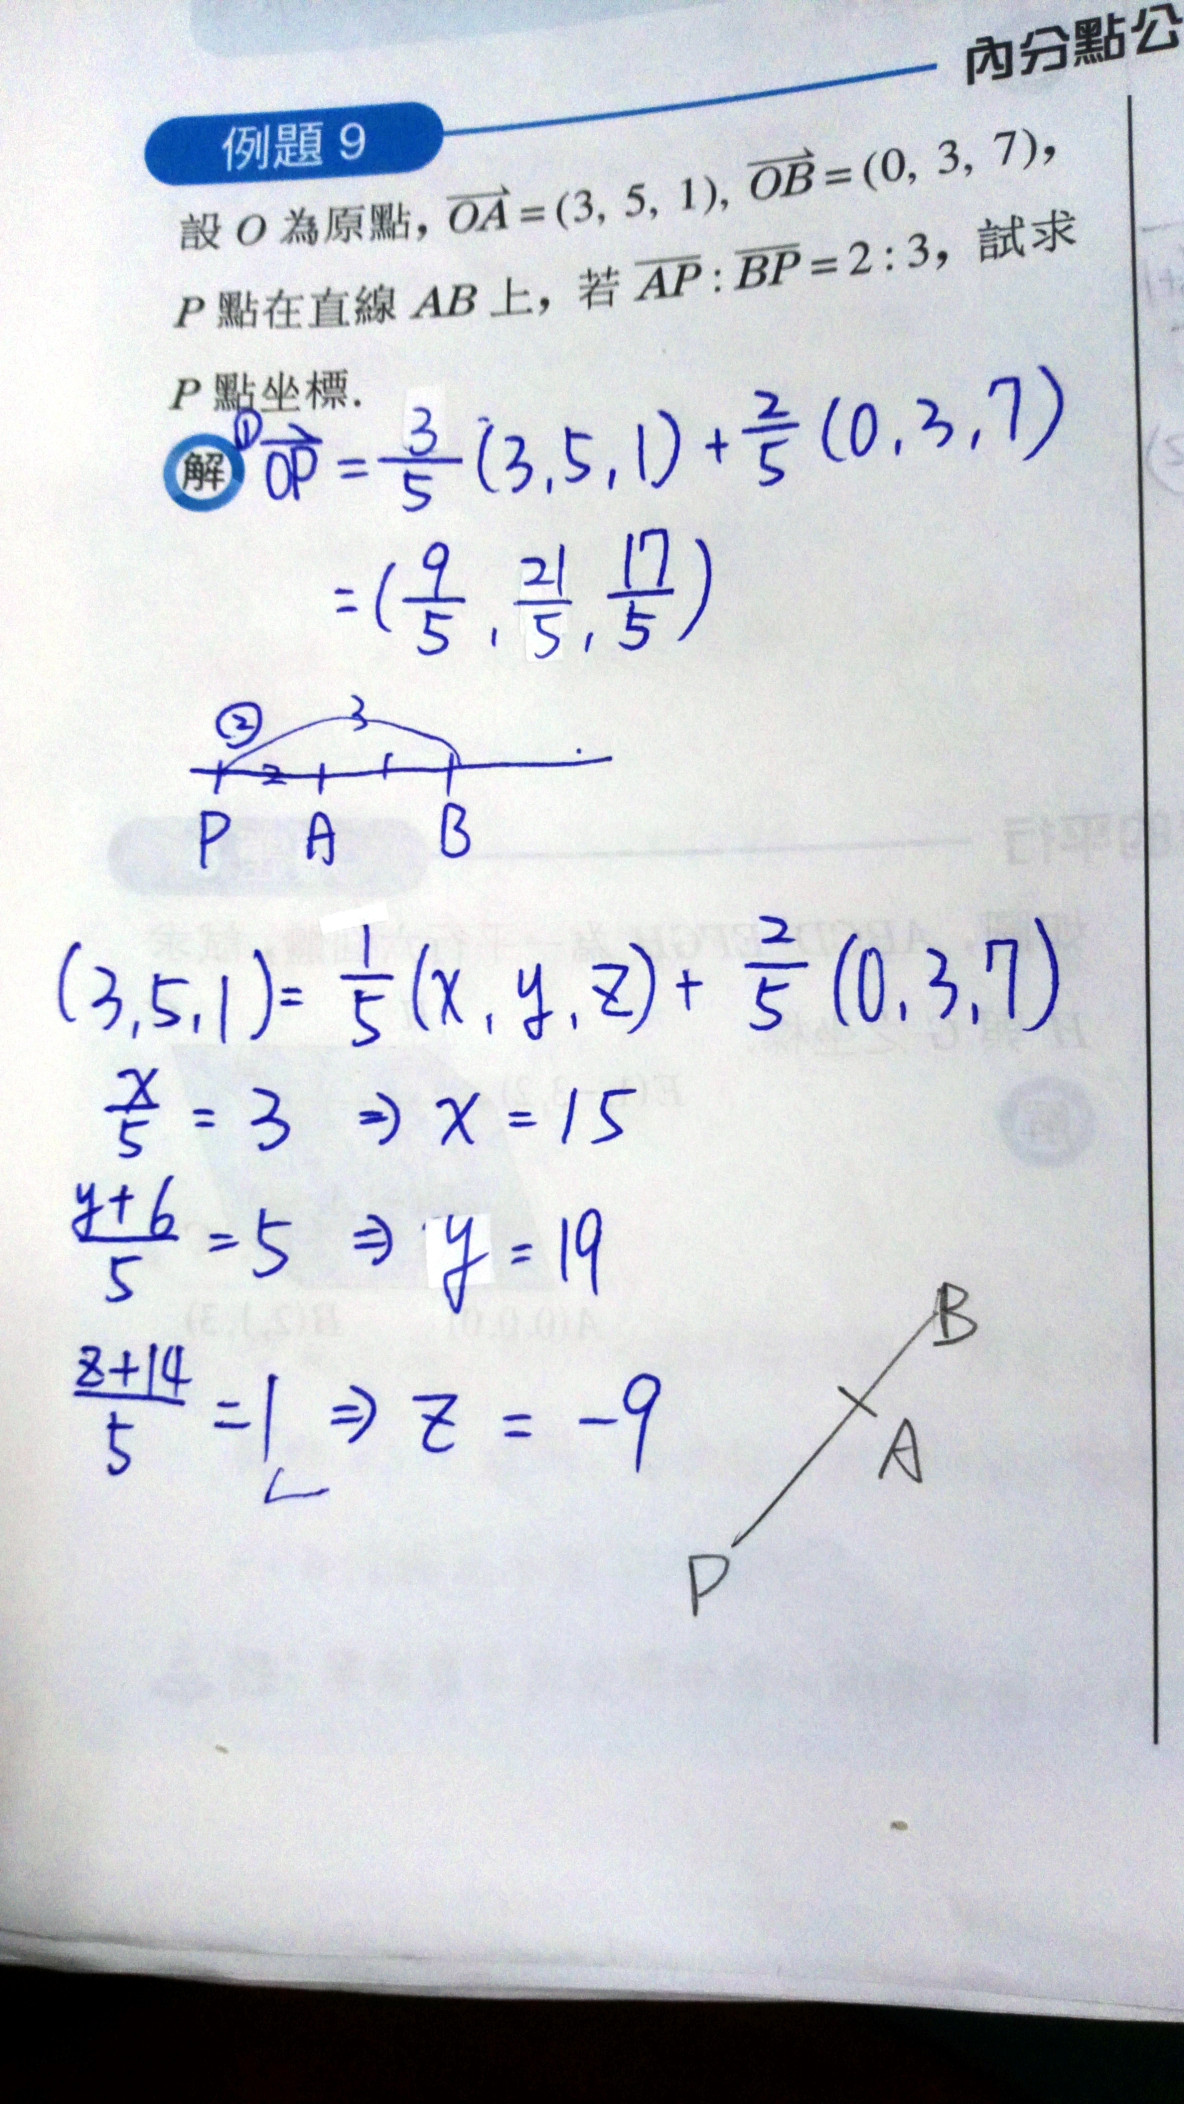 內分點公
例題 9
設 O 為原點，OA = (3, 5, 1), OB = (0, 3, 7)，
P 點在直線 AB 上，若 AP : BP = 2 : 3，試求
P 點坐標.
解 ① OP = 3/5 (3, 5, 1) + 2/5 (0, 3, 7)
= (9/5, 21/5, 17/5)
② 3
2
P A B
(3,5,1) = 1/5 (x, y, z) + 2/5 (0, 3, 7)
x/5 = 3 ⇒ x = 15
y+6/5 = 5 ⇒ y = 19
z+14/5 = 1 ⇒ z = -9
B
A
P